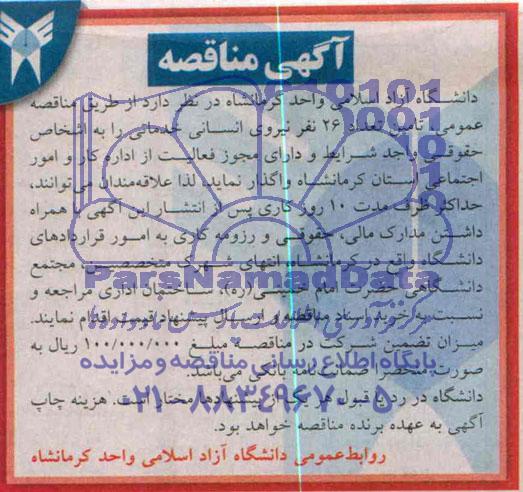 آگهی مناقصه
دانشگاه آزاد اسلامی واحد کرمانشاه در نظر دارد از طریق مناقصه
عمومی، تامین تعداد ۲۶ نفر نیروی انسانی خدماتی را به اشخاص
حقوقی واجد شرایط و دارای مجوز فعالیت از اداره کار و امور
اجتماعی استان کرمانشاه واگذار نماید. لذا علاقه‌مندان می‌توانند،
حداکثر ظرف مدت ۱۰ روز کاری پس از انتشار این آگهی با همراه
داشتن مدارک مالی، حقوقی و رزومه کاری به امور قراردادهای
دانشگاه واقع در کرمانشاه، انتهای شهرک متخصصین، مجتمع
دانشگاهی حضرت امام خمینی(ره)، ساختمان اداری مراجعه و
نسبت به خرید اسناد مناقصه و ارسال پیشنهاد قیمت اقدام نمایند.
میزان تضمین شرکت در مناقصه مبلغ ۱۰۰/۰۰۰/۰۰۰ ریال به
صورت منحصرا ضمانت‌نامه بانکی می‌باشد.
دانشگاه در رد یا قبول هر یک از پیشنهادها مختار است. هزینه چاپ
آگهی به عهده برنده مناقصه خواهد بود.
روابط‌عمومی دانشگاه آزاد اسلامی واحد کرمانشاه
ParsNamadData
پایگاه اطلاع رسانی مناقصه و مزایده
۰۲۱-۸۸۳۴۹۶۷۰-۵